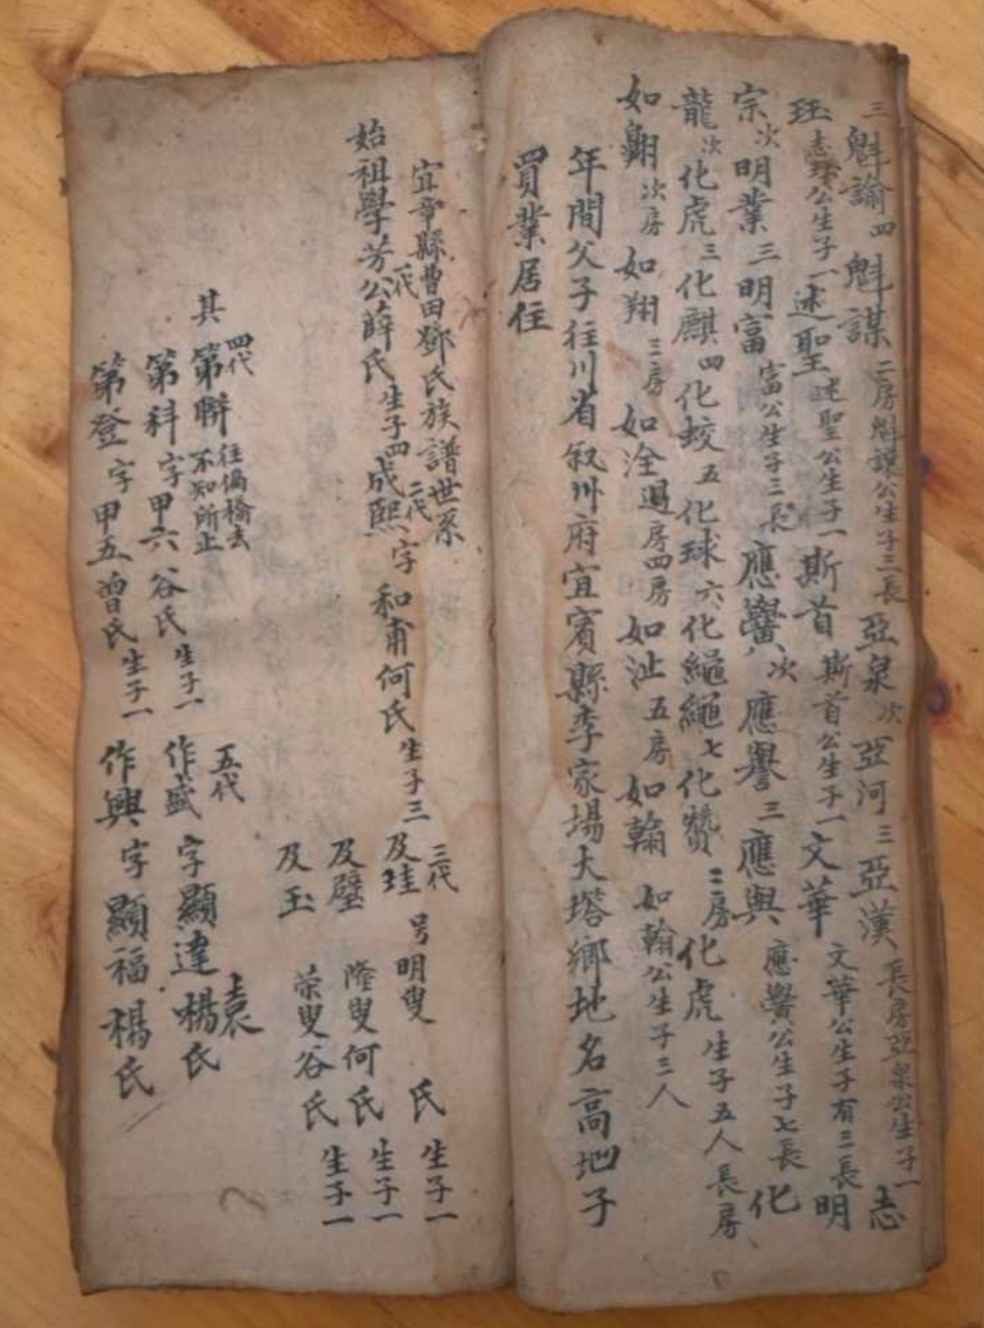 三魁諭四魁謀二房魁謨公生子三長亞泉次亞河三亞漢長房亞泉公生子一志
珏志珏公生子一述聖述聖公生子一斯首斯首公生子一文華文華公生子有三長明
宗次明業三明富富公生子三長應響次應譽三應與應響公生子七長化
龍次化虎三化麒四化蛟五化球六化繩繩七化贊二房化虎生子五人長房
如翱次房如翔三房如淦過房四房如沚五房如翰如翰公生子三人
年間父子往川省叙州府宜賓縣李家場大塔鄉地名高地子
買業居住
宜章縣曹田鄧氏族譜世系
始祖學芳公薛氏生子四成熙字和甫何氏生子三
一代 二代 三代
及珪号明叟 氏生子一
及璧隆叟何氏生子一
及玉荣叟谷氏生子一
四代 五代
其第聯往偏橋去不知所止
第科字甲六谷氏生子一作盛字顯達楊氏袁
第登字甲五曾氏生子一作興字顯福楊氏